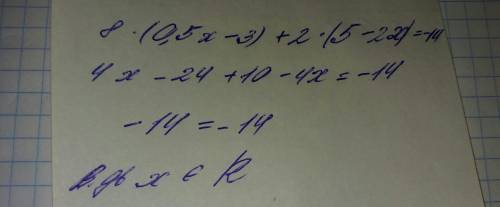 8 · (0,5x - 3) + 2 · (5 - 2x) = -14
4x - 24 + 10 - 4x = -14
-14 = -14
x ∈ R